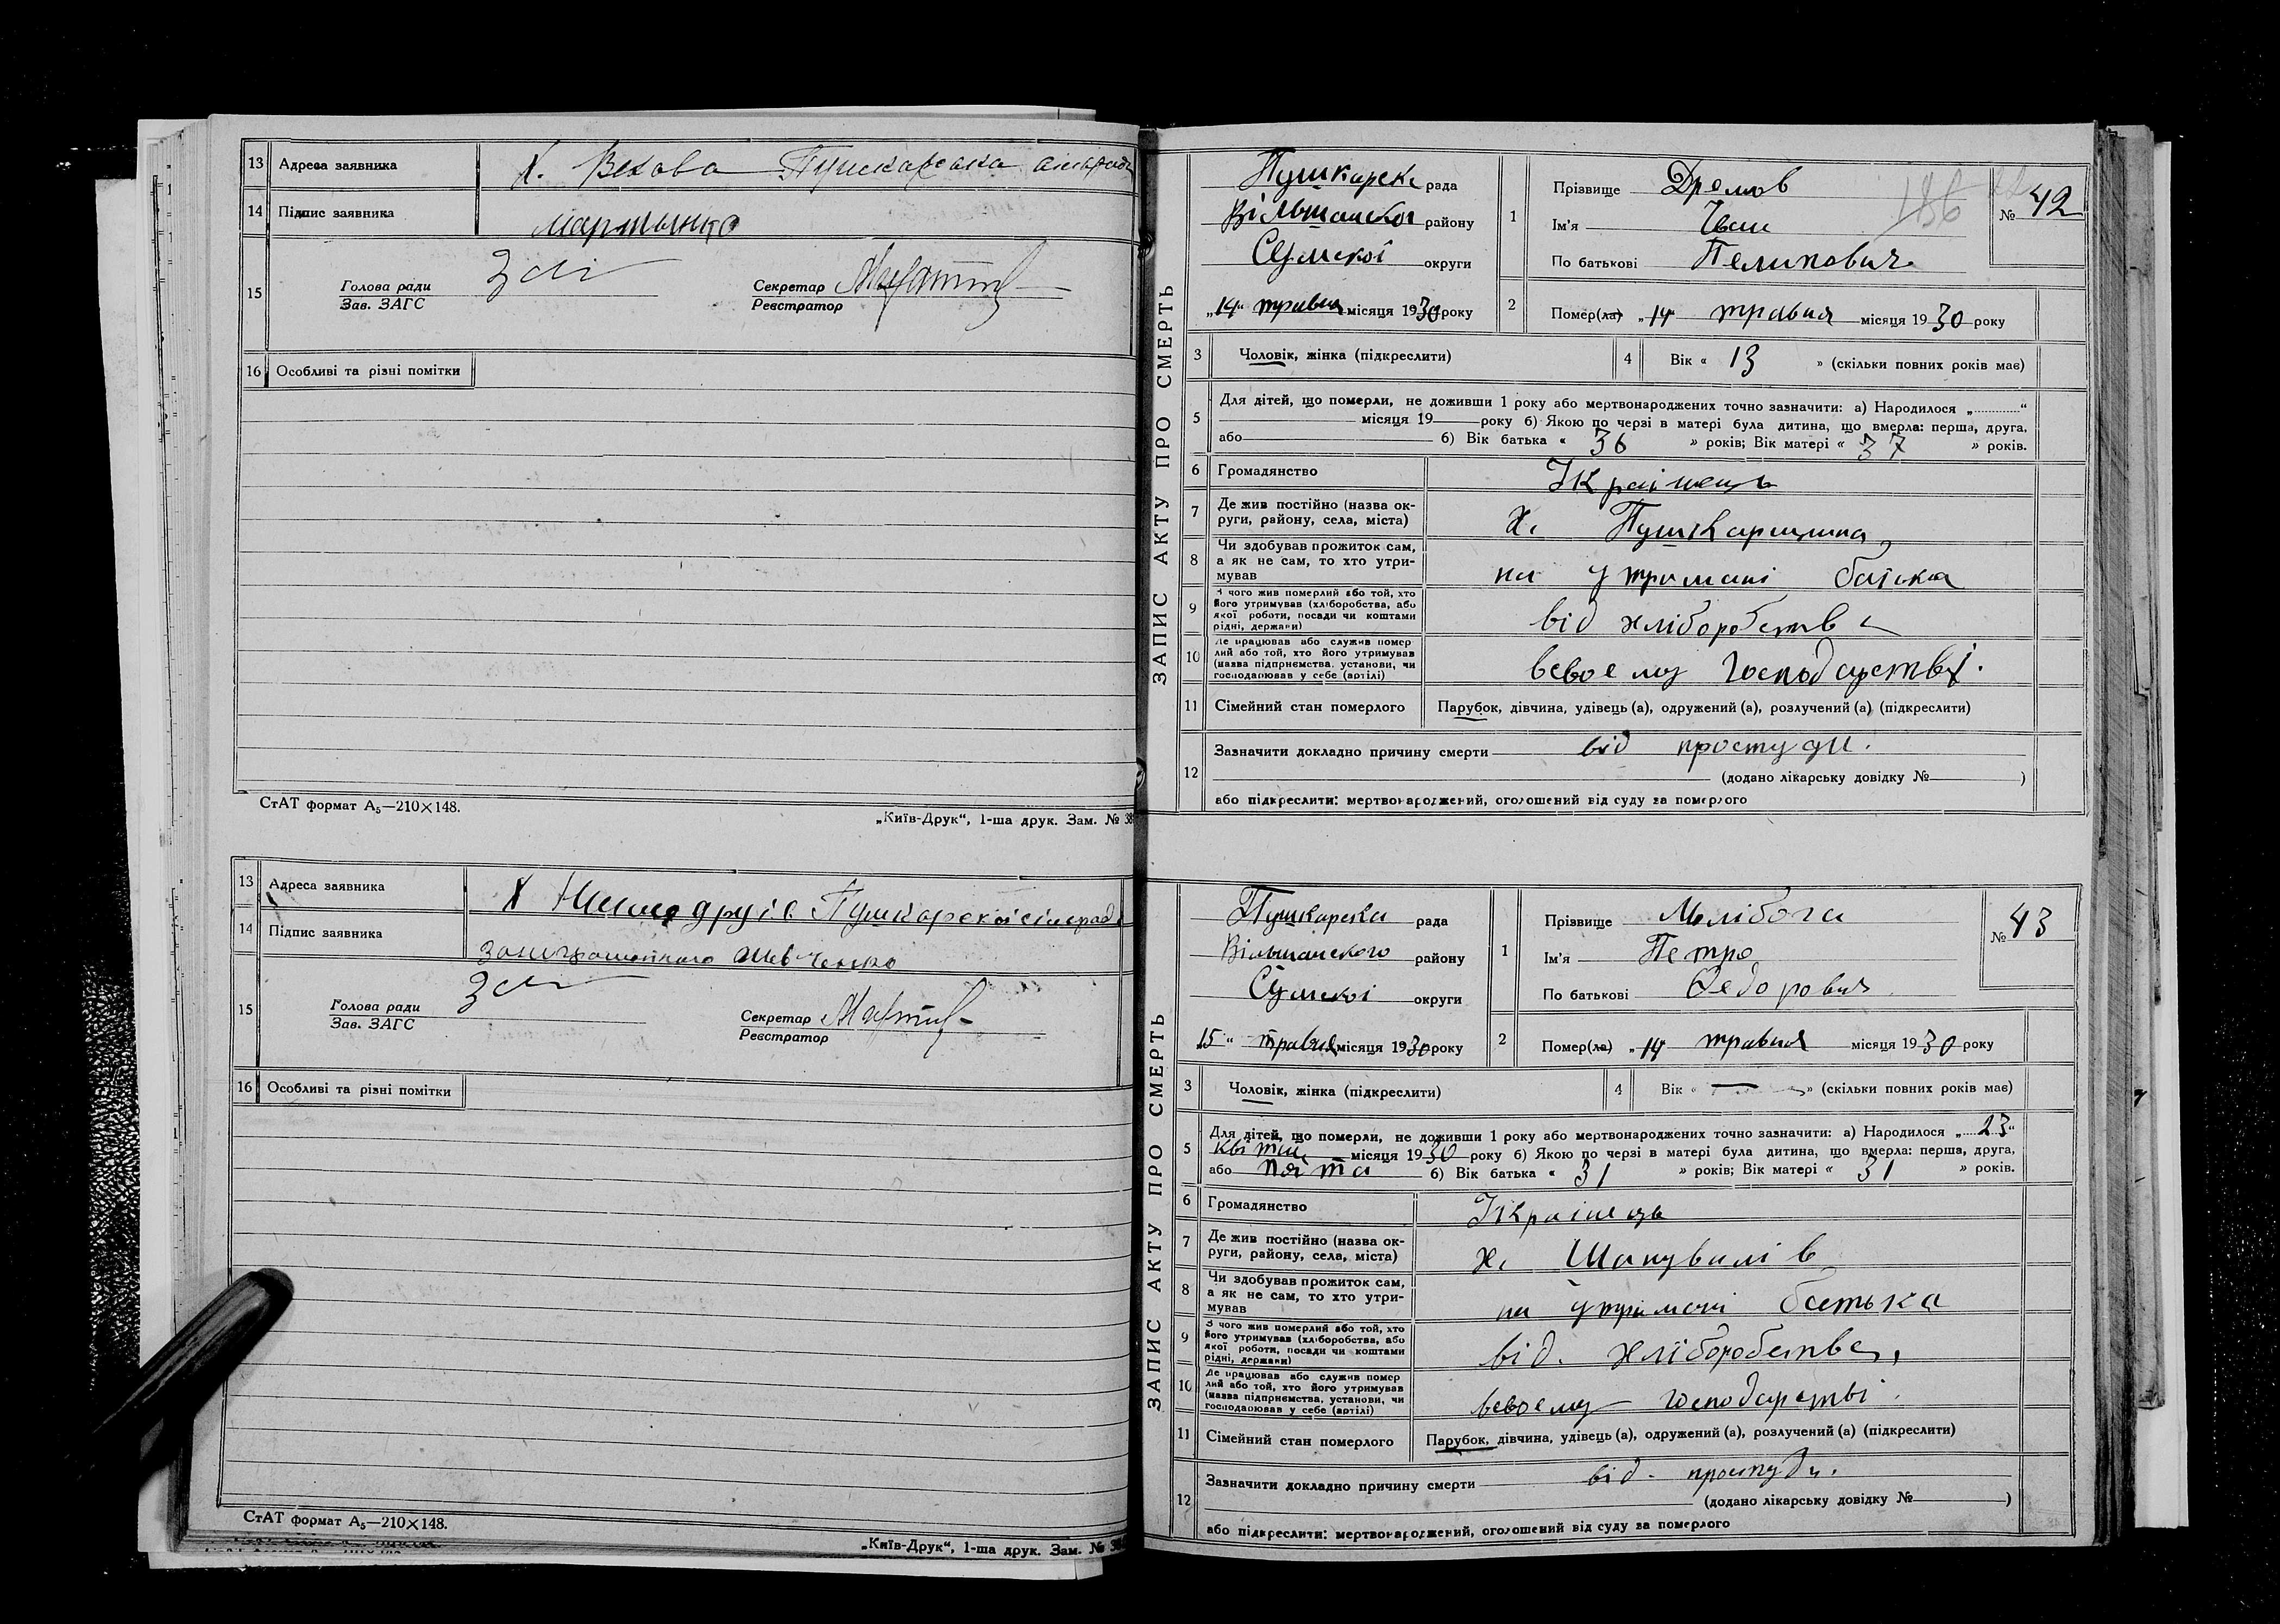 13 Адреса заявника Х. Вехова Пушкарська
14 Підпис заявника Мартынко
15 Голова ради Зав. ЗАГС
Секретар Реєстратор
16 Особливі та різні помітки
СтАТ формат А₅—210×148.
„Київ-Друк“, 1-ша друк. Зам. № 38
13 Адреса заявника Х Пушкарської сільради
14 Підпис заявника Шевченко
15 Голова ради Зав. ЗАГС
Секретар Реєстратор
16 Особливі та різні помітки
СтАТ формат А₅—210×148.
„Київ-Друк“, 1-ша друк. Зам. №
ЗАПИС АКТУ ПРО СМЕРТЬ
Пушкарська рада
Вільшанського району
Сумської округи
„14“ травня місяця 1930 року
1 Прізвище Дремов
Ім'я Іван
По батькові Пелипович
186
№ 42
2 Помер(ла) „14“ травня місяця 1930 року
3 Чоловік, жінка (підкреслити)
4 Вік « 13 » (скільки повних років має)
5 Для дітей, що померли, не доживши 1 року або мертвонароджених точно зазначити: а) Народилося „............“
місяця 19 року б) Якою по черзі в матері була дитина, що вмерла: перша, друга,
або б) Вік батька « 36 » років; Вік матері « 37 » років.
6 Громадянство Україиець
7 Де жив постійно (назва округи, району, села, міста) х. Пушкарщина
8 Чи здобував прожиток сам, а як не сам, то хто утримував на утримані батька
9 З чого жив померлий або той, хто його утримував (хліборобства, або якої роботи, посади чи коштами рідні, держави) від хліборобства
10 Де працював або служив померлий або той, хто його утримував (назва підприємства, установи, чи господарював у себе (артілі) всвоему господарстві.
11 Сімейний стан померлого Парубок, дівчина, удівець (а), одружений (а), розлучений (а) (підкреслити)
12 Зазначити докладно причину смерти від простуди.
(додано лікарську довідку № )
або підкреслити: мертвонароджений, оголошений від суду за померлого
ЗАПИС АКТУ ПРО СМЕРТЬ
Пушкарська рада
Вільшанського району
Сумскоі округи
„15“ травня місяця 1930 року
1 Прізвище Мелібога
Ім'я Петро
По батькові Федорович
№ 43
2 Помер(ла) „14“ травня місяця 1930 року
3 Чоловік, жінка (підкреслити)
4 Вік « — » (скільки повних років має)
5 Для дітей, що померли, не доживши 1 року або мертвонароджених точно зазначити: а) Народилося „23“
квітня місяця 1930 року б) Якою по черзі в матері була дитина, що вмерла: перша, друга,
або пята б) Вік батька « 31 » років; Вік матері « 31 » років.
6 Громадянство Україиець
7 Де жив постійно (назва округи, району, села, міста) х. Шапувалів
8 Чи здобував прожиток сам, а як не сам, то хто утримував на утримані батька
9 З чого жив померлий або той, хто його утримував (хліборобства, або якої роботи, посади чи коштами рідні, держави) від. хліборобства,
10 Де працював або служив померлий або той, хто його утримував (назва підприємства, установи, чи господарював у себе (артілі) всвоему господарстві.
11 Сімейний стан померлого Парубок, дівчина, удівець (а), одружений (а), розлучений (а) (підкреслити)
12 Зазначити докладно причину смерти від простуди.
(додано лікарську довідку № )
або підкреслити: мертвонароджений, оголошений від суду за померлого